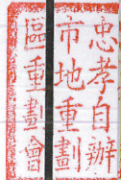 忠孝自辦
市地重劃
區重劃會